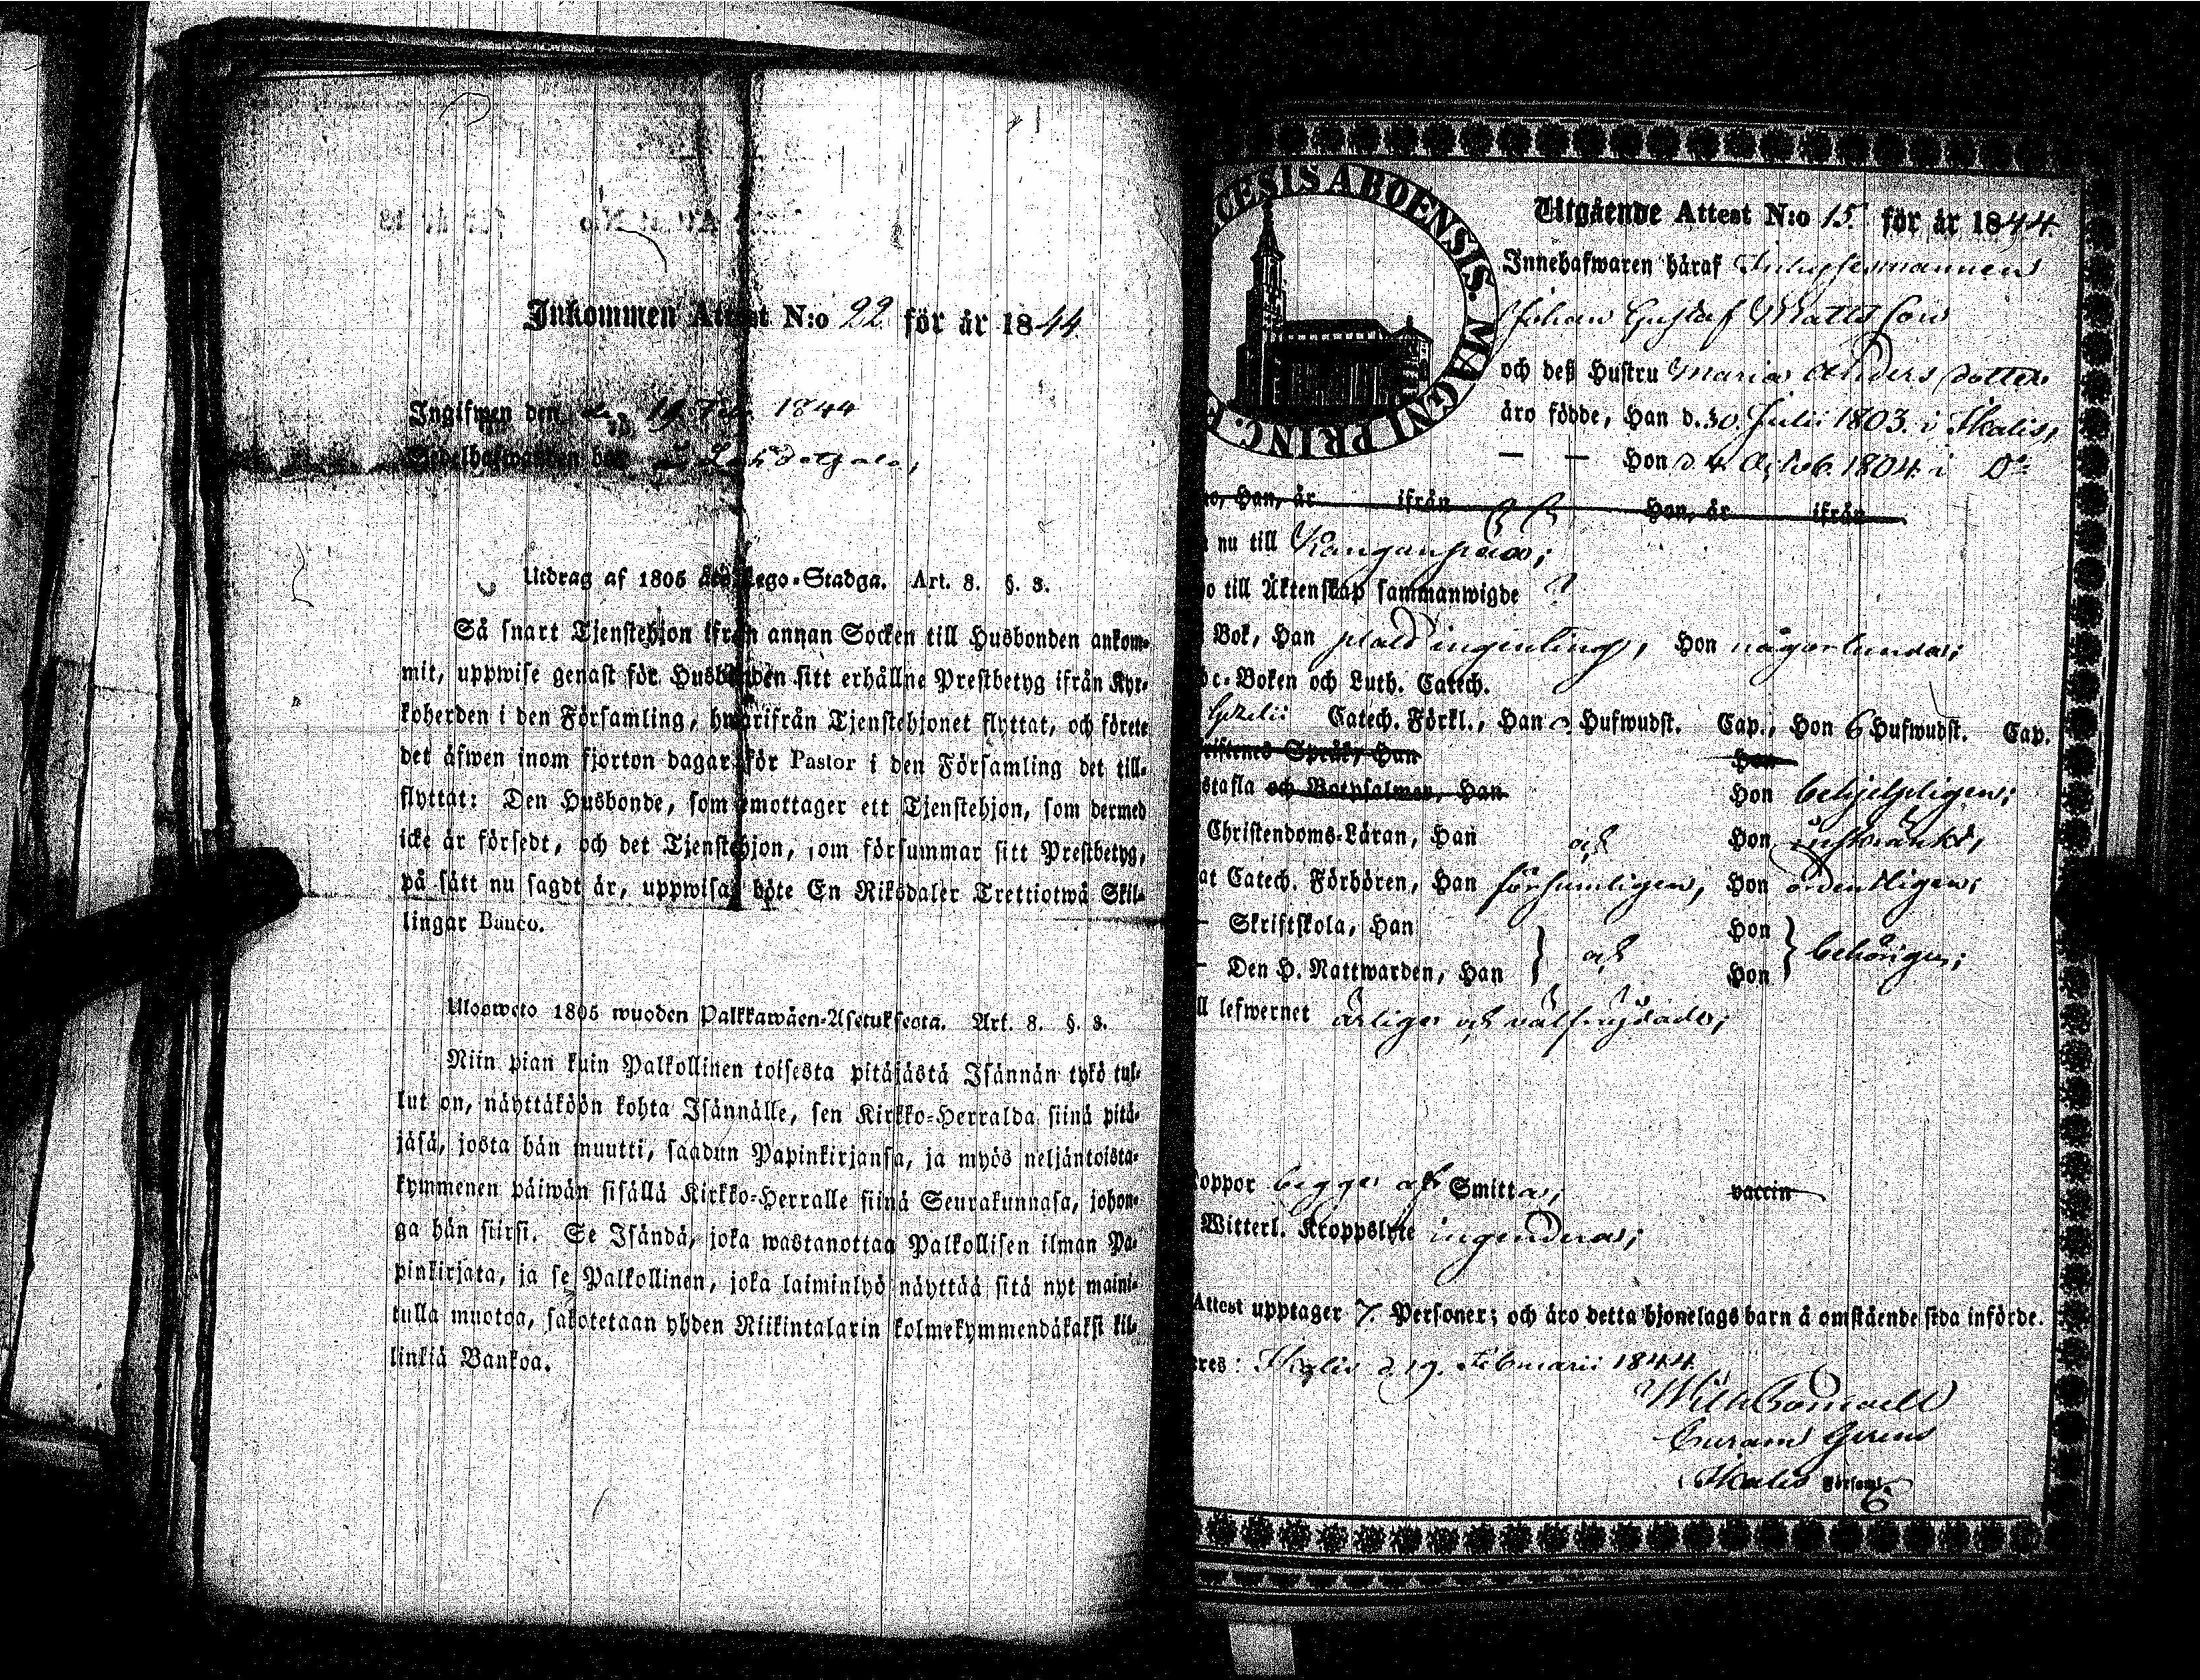 Inkommen Attest N:o 22 för år 1844.
Ingifwen den 19 Feb. 1844
Utdrag af 1805 års Lego-Stadga. Art. 8. §. 3.
Så snart Tjenstehjon ifrån annan Socken till Husbonden ankom-
mit, uppwise genast för Husbonden sitt erhållne Prestbetyg ifrån Kyr-
koherden i den Församling, hwarifrån Tjenstehjonet flyttat, och förete
det äfwen inom fjorton dagar för Pastor i den Församling det till-
flyttat: Den Husbonde, som emottager ett Tjenstehjon, som dermed
icke är försedt, och det Tjenstehjon, som försummar sitt Prestbetyg,
på sätt nu sagdt är, uppwisa, böte En Riksdaler Trettiotwå Skil-
lingar Banco.
Ulosweto 1805 wuoden Palkkawäen-Asetuksesta. Art. 8. §. 3.
Niin pian kuin Palkollinen toisesta pitäjästä Isännän tykö tul-
lut on, näyttäköön kohta Isännälle, sen Kirkko-Herralda siinä pitä-
jäsä, josta hän muutti, saadun Papinkirjansa, ja myös neljäntoista-
kymmenen päiwän sisällä Kirkko-Herralle siinä Seurakunnasa, johon-
ga hän siirsi. Se Isändä, joka wastanottaa Palkollisen ilman Pa-
pinkirjata, ja se Palkollinen, joka laiminlyö näyttää sitä nyt maini-
tulla muotoa, sakotetaan yhden Riikintalarin kolmekymmendäkaksi kil-
linkiä Bankoa.
CESIS ABOENSIS. MAGNI PRINC. F
Utgående Attest N:o 15. för år 1844.
Innehafwaren häraf Inhysesmannen
Johan Gustaf Mattsson
och deß Hustru Maria Andersdotter
äro födde, Han d. 30. Julii 1803. i Skalis,
— — Hon d. 4. Octob. 1804. i D:o
o, Han, år ifrån Hon, år ifrån
nu till Kanganpää;
o till Äktenskap sammanwigde ?
Bok, Han ingenting, Hon någorlunda;
c-Boken och Luth. Catech.
Catech. Förkl., Han 0 Hufwudst. Cap., Hon 6 Hufwudst. Cap.
riftenes Språk, Han Hon
stafla och Botpsalmer, Han Hon behjelpligen;
Christendoms-Läran, Han och Hon inskränkt,
at Catech. Förhören, Han försumligen, Hon ordentligen;
— Skriftskola, Han Hon
— Den H. Nattwarden, Han } och Hon } behörige;
ll lefwernet ärlige och välfrejdade;
oppor begge af Smitta; vaccin
Witterl. Kroppslyte ingendera;
Attest upptager 7. Personer; och äro detta hjonelags barn å omstående sida införde.
eres: Skalis d. 19. Februarii 1844.
Curam Gerens
i Skalis Församl.